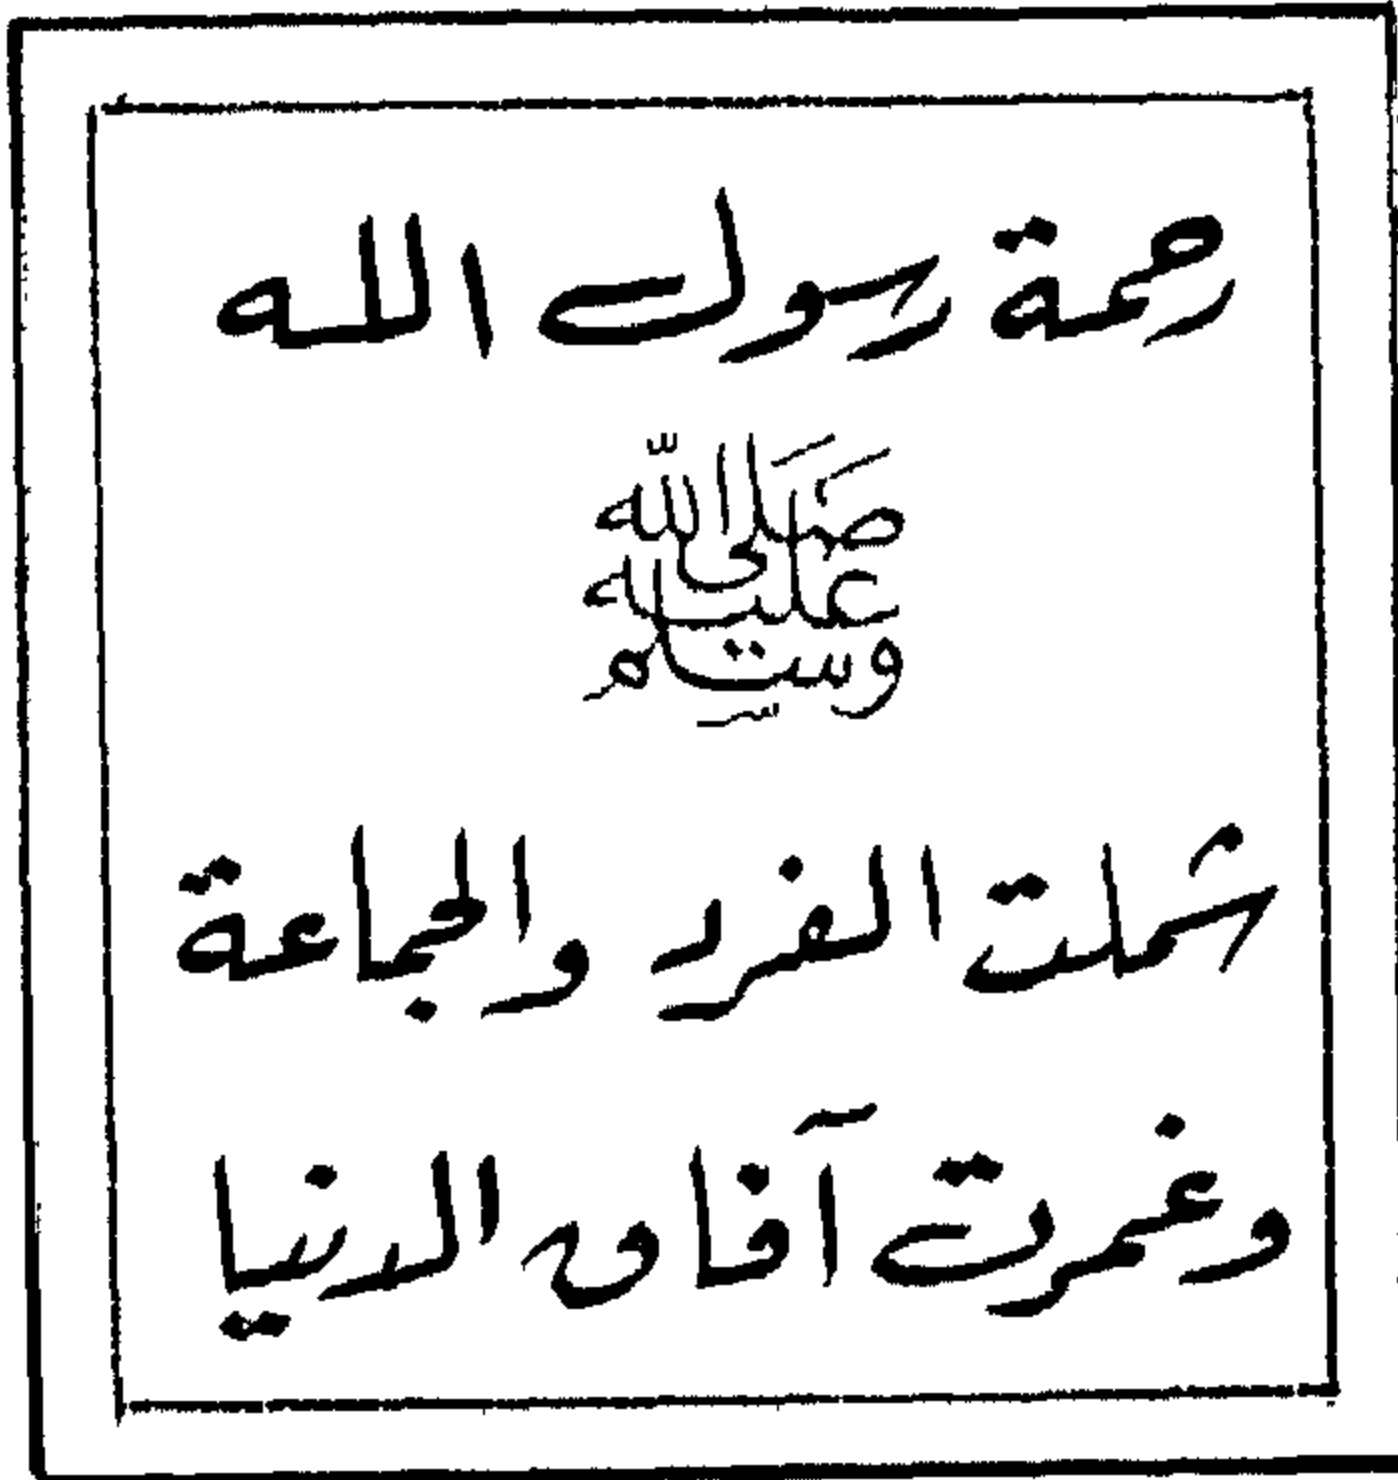 رحمة رسول الله
صلى الله عليه وسلم
شملت الفرد والجماعة
وغمرت آفاق الدنيا